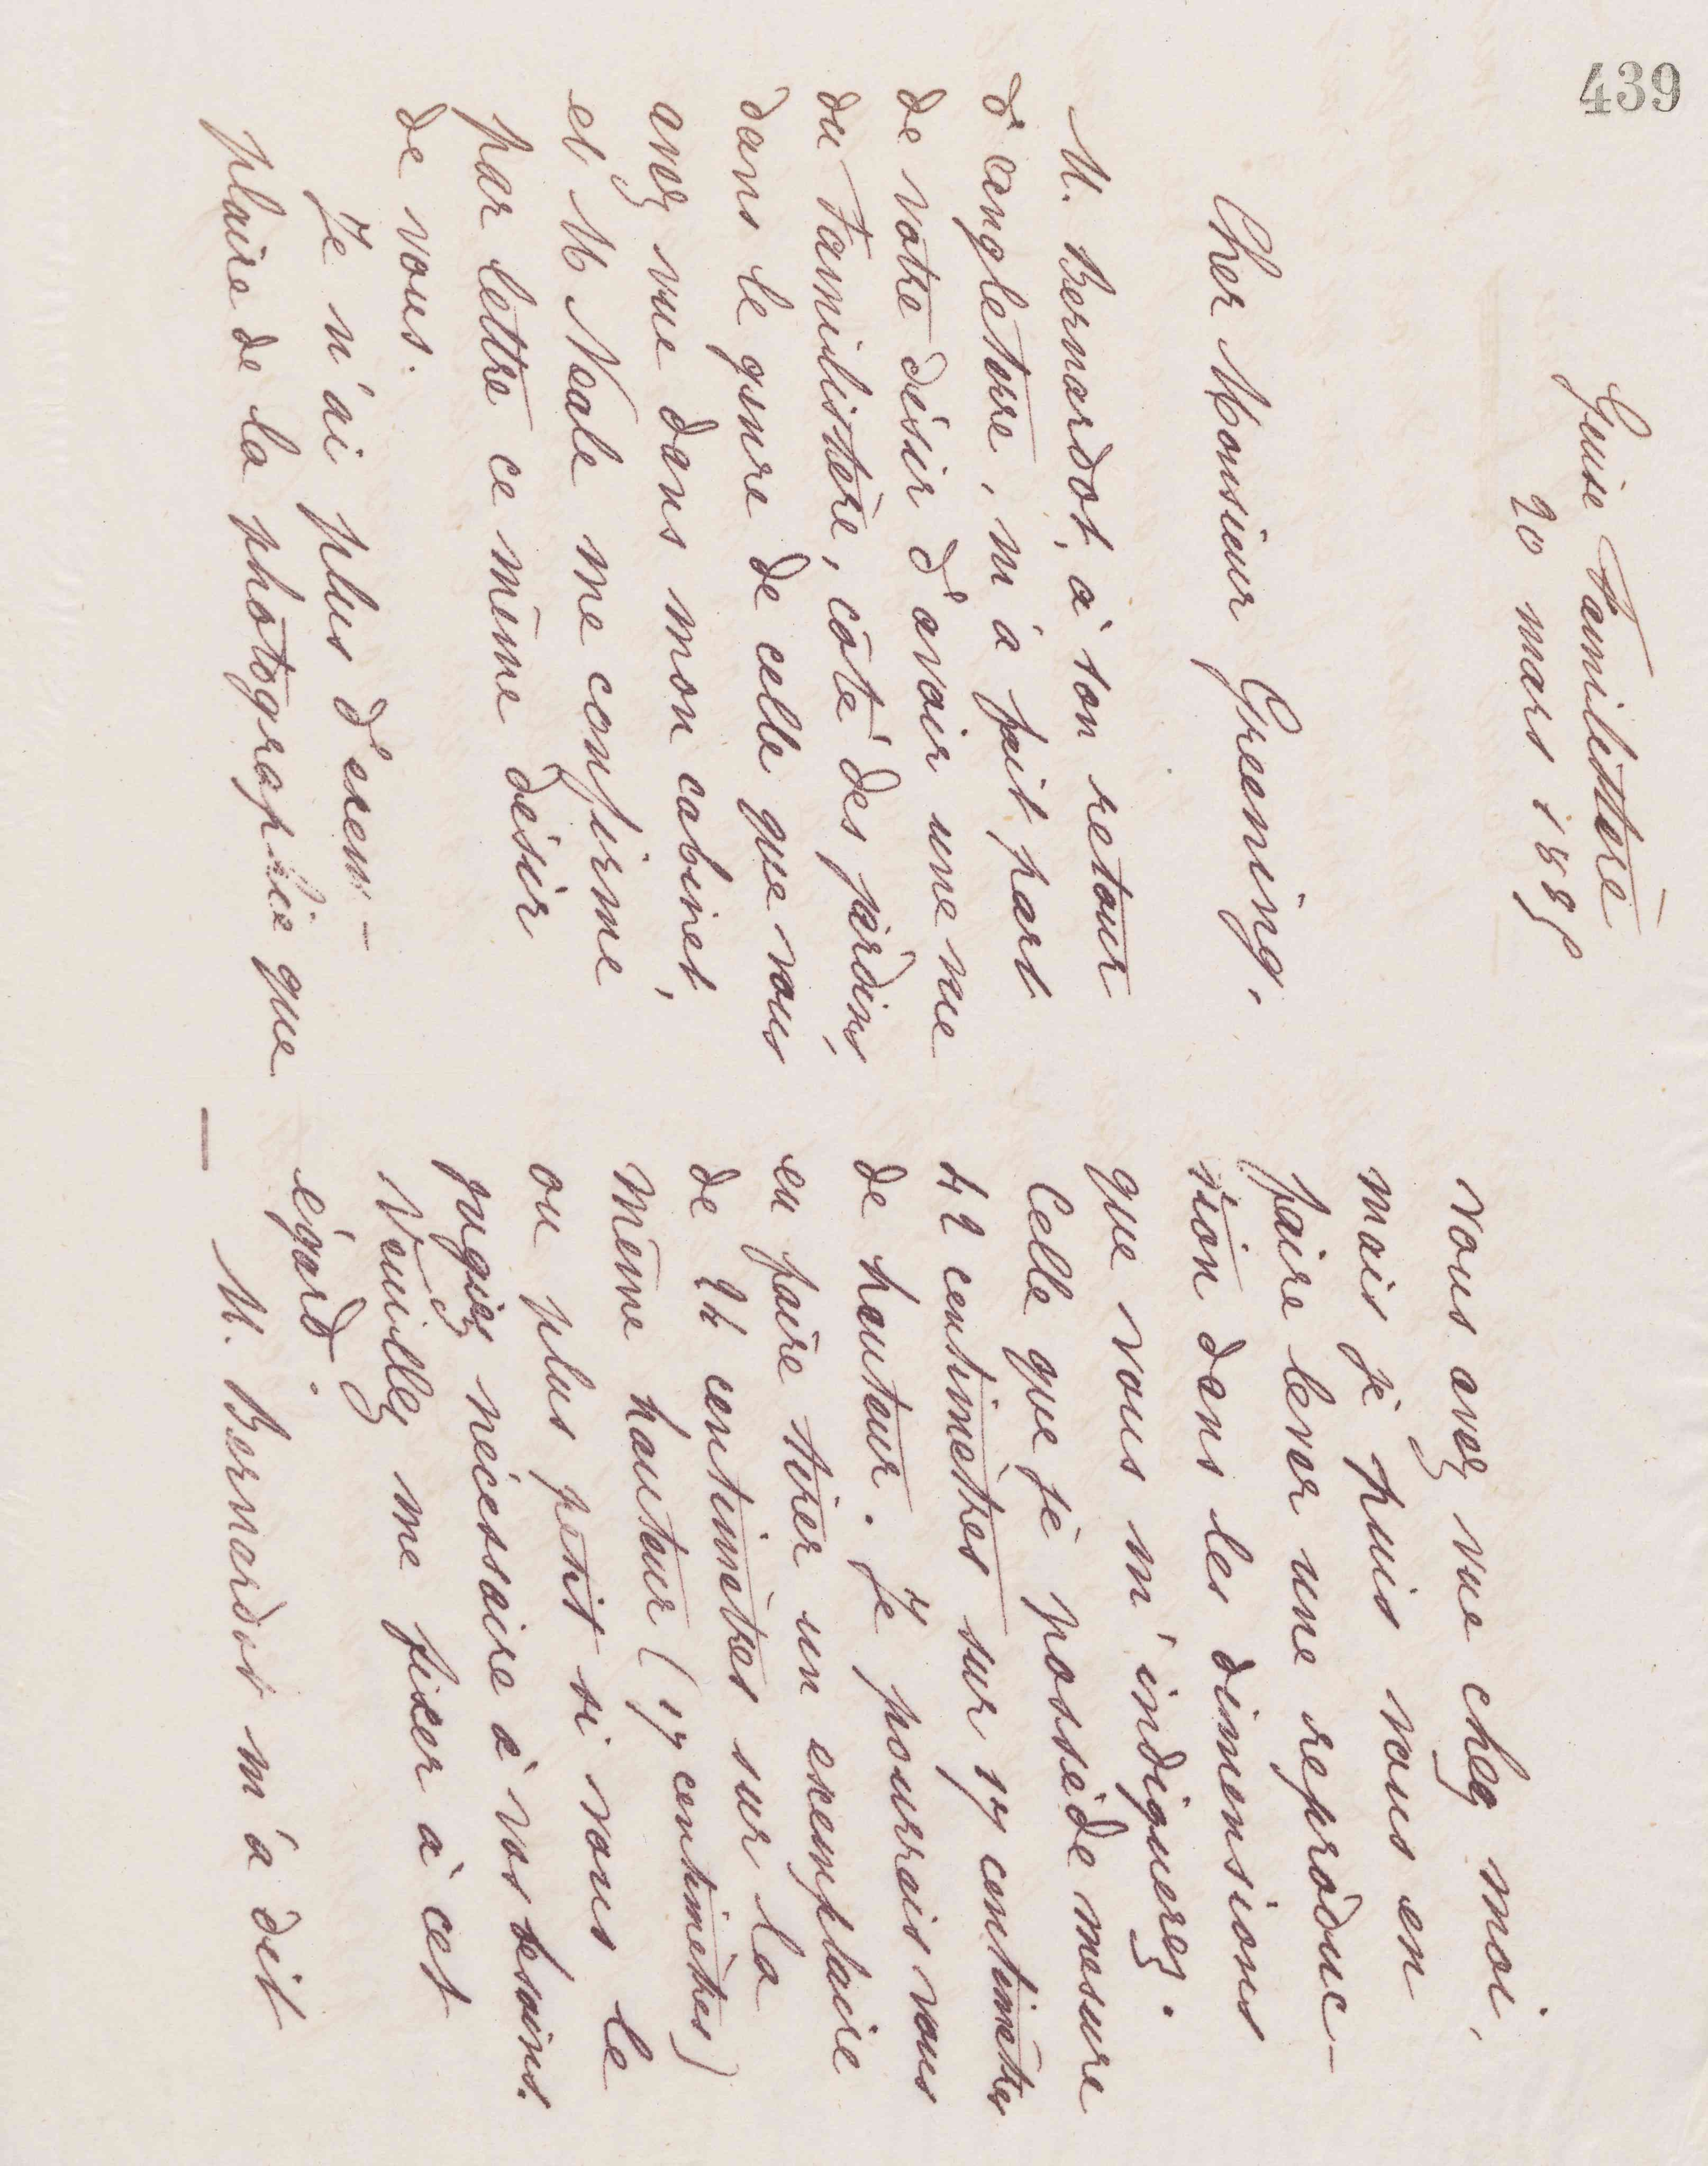 439
Guise Familistère
20 mars 1885
Cher Monsieur Greening,
M. Bernardot, à son retour
d'angleterre, m'a fait part
de votre désir d'avoir une vue
du Familistère, côté des jardins,
dans le genre de celle que vous
avez vue dans mon cabinet,
et M Neale me confirme
par lettre ce même désir
de vous.
Je n'ai plus d'exem-
plaire de la photographie que
vous avez vue chez moi,
mais je puis vous en
faire lever une reproduc-
tion dans les dimensions
que vous m'indiquerez.
Celle que je possède mesure
42 centimètres sur 17 centimètres
de hauteur. Je pourrais vous
en faire tirer un exemplaire
de 24 centimètres sur la
même hauteur (17 centimètres)
ou plus petit si vous le
jugiez nécessaire à vos besoins.
Veuillez me fixer à cet
égard.
M. Bernardot m'a dit